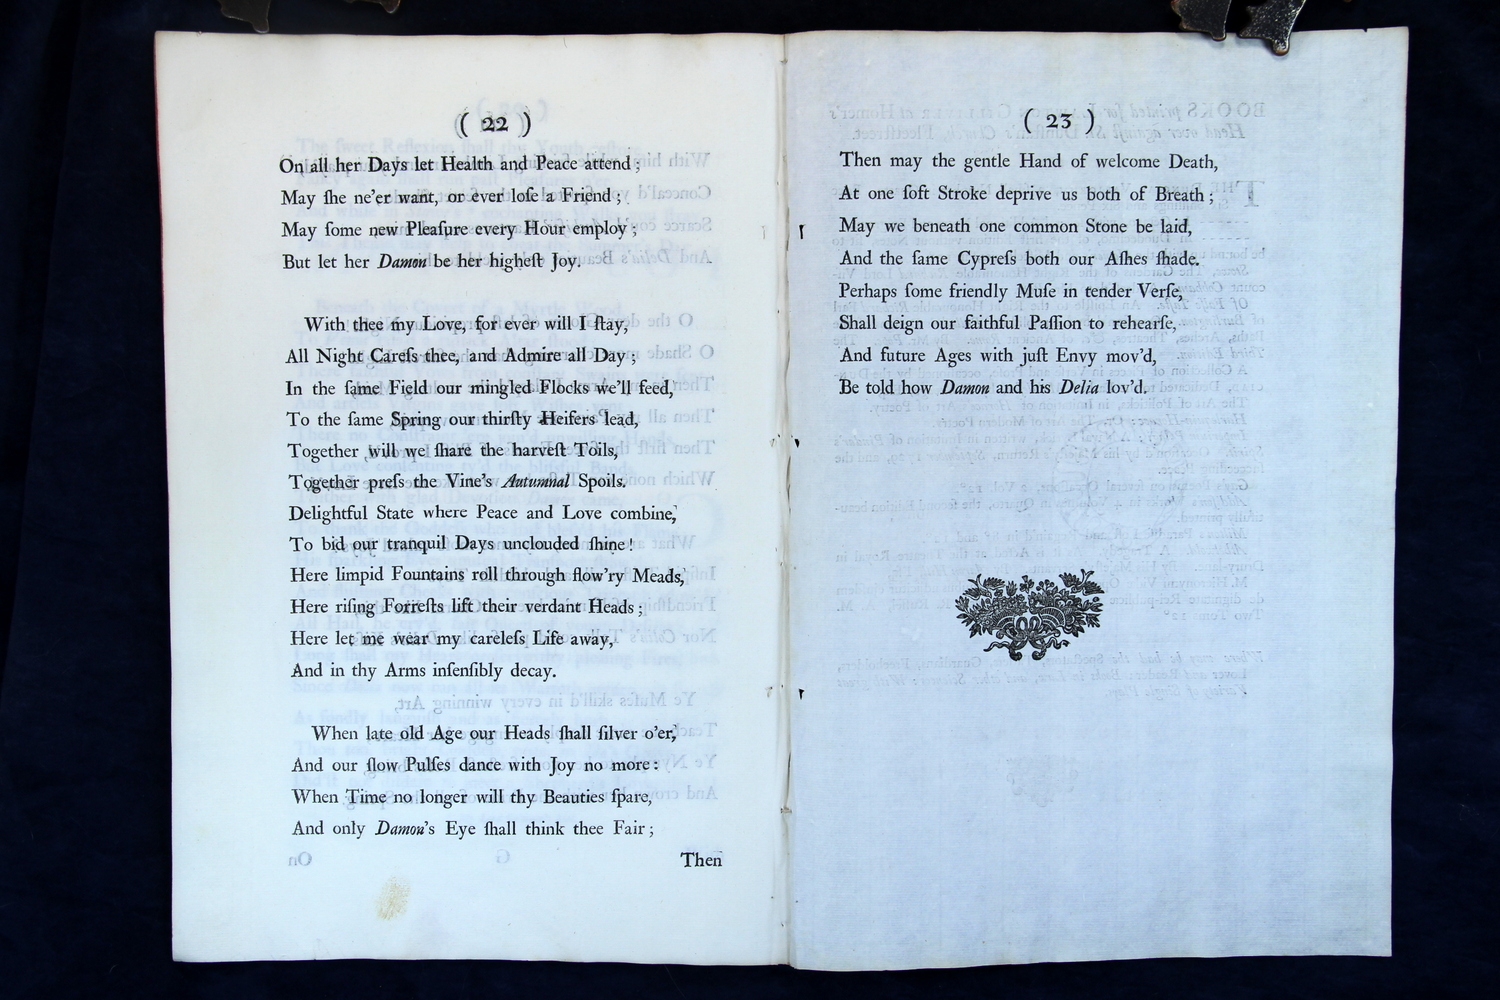 ( 22 )
On all her Days let Health and Peace attend ;
May ſhe ne'er want, or ever loſe a Friend ;
May ſome new Pleaſure every Hour employ ;
But let her Damon be her higheſt Joy.
With thee my Love, for ever will I ſtay,
All Night Careſs thee, and Admire all Day ;
In the ſame Field our mingled Flocks we'll feed,
To the ſame Spring our thirſty Heifers lead,
Together will we ſhare the harveſt Toils,
Together preſs the Vine's Autumnal Spoils.
Delightful State where Peace and Love combine,
To bid our tranquil Days unclouded ſhine !
Here limpid Fountains roll through flow'ry Meads,
Here riſing Forreſts lift their verdant Heads ;
Here let me wear my careleſs Life away,
And in thy Arms inſenſibly decay.
When late old Age our Heads ſhall ſilver o'er,
And our ſlow Pulſes dance with Joy no more :
When Time no longer will thy Beauties ſpare,
And only Damon's Eye ſhall think thee Fair ;
Then
( 23 )
Then may the gentle Hand of welcome Death,
At one ſoft Stroke deprive us both of Breath ;
May we beneath one common Stone be laid,
And the ſame Cypreſs both our Aſhes ſhade.
Perhaps ſome friendly Muſe in tender Verſe,
Shall deign our faithful Paſſion to rehearſe,
And future Ages with juſt Envy mov'd,
Be told how Damon and his Delia lov'd.